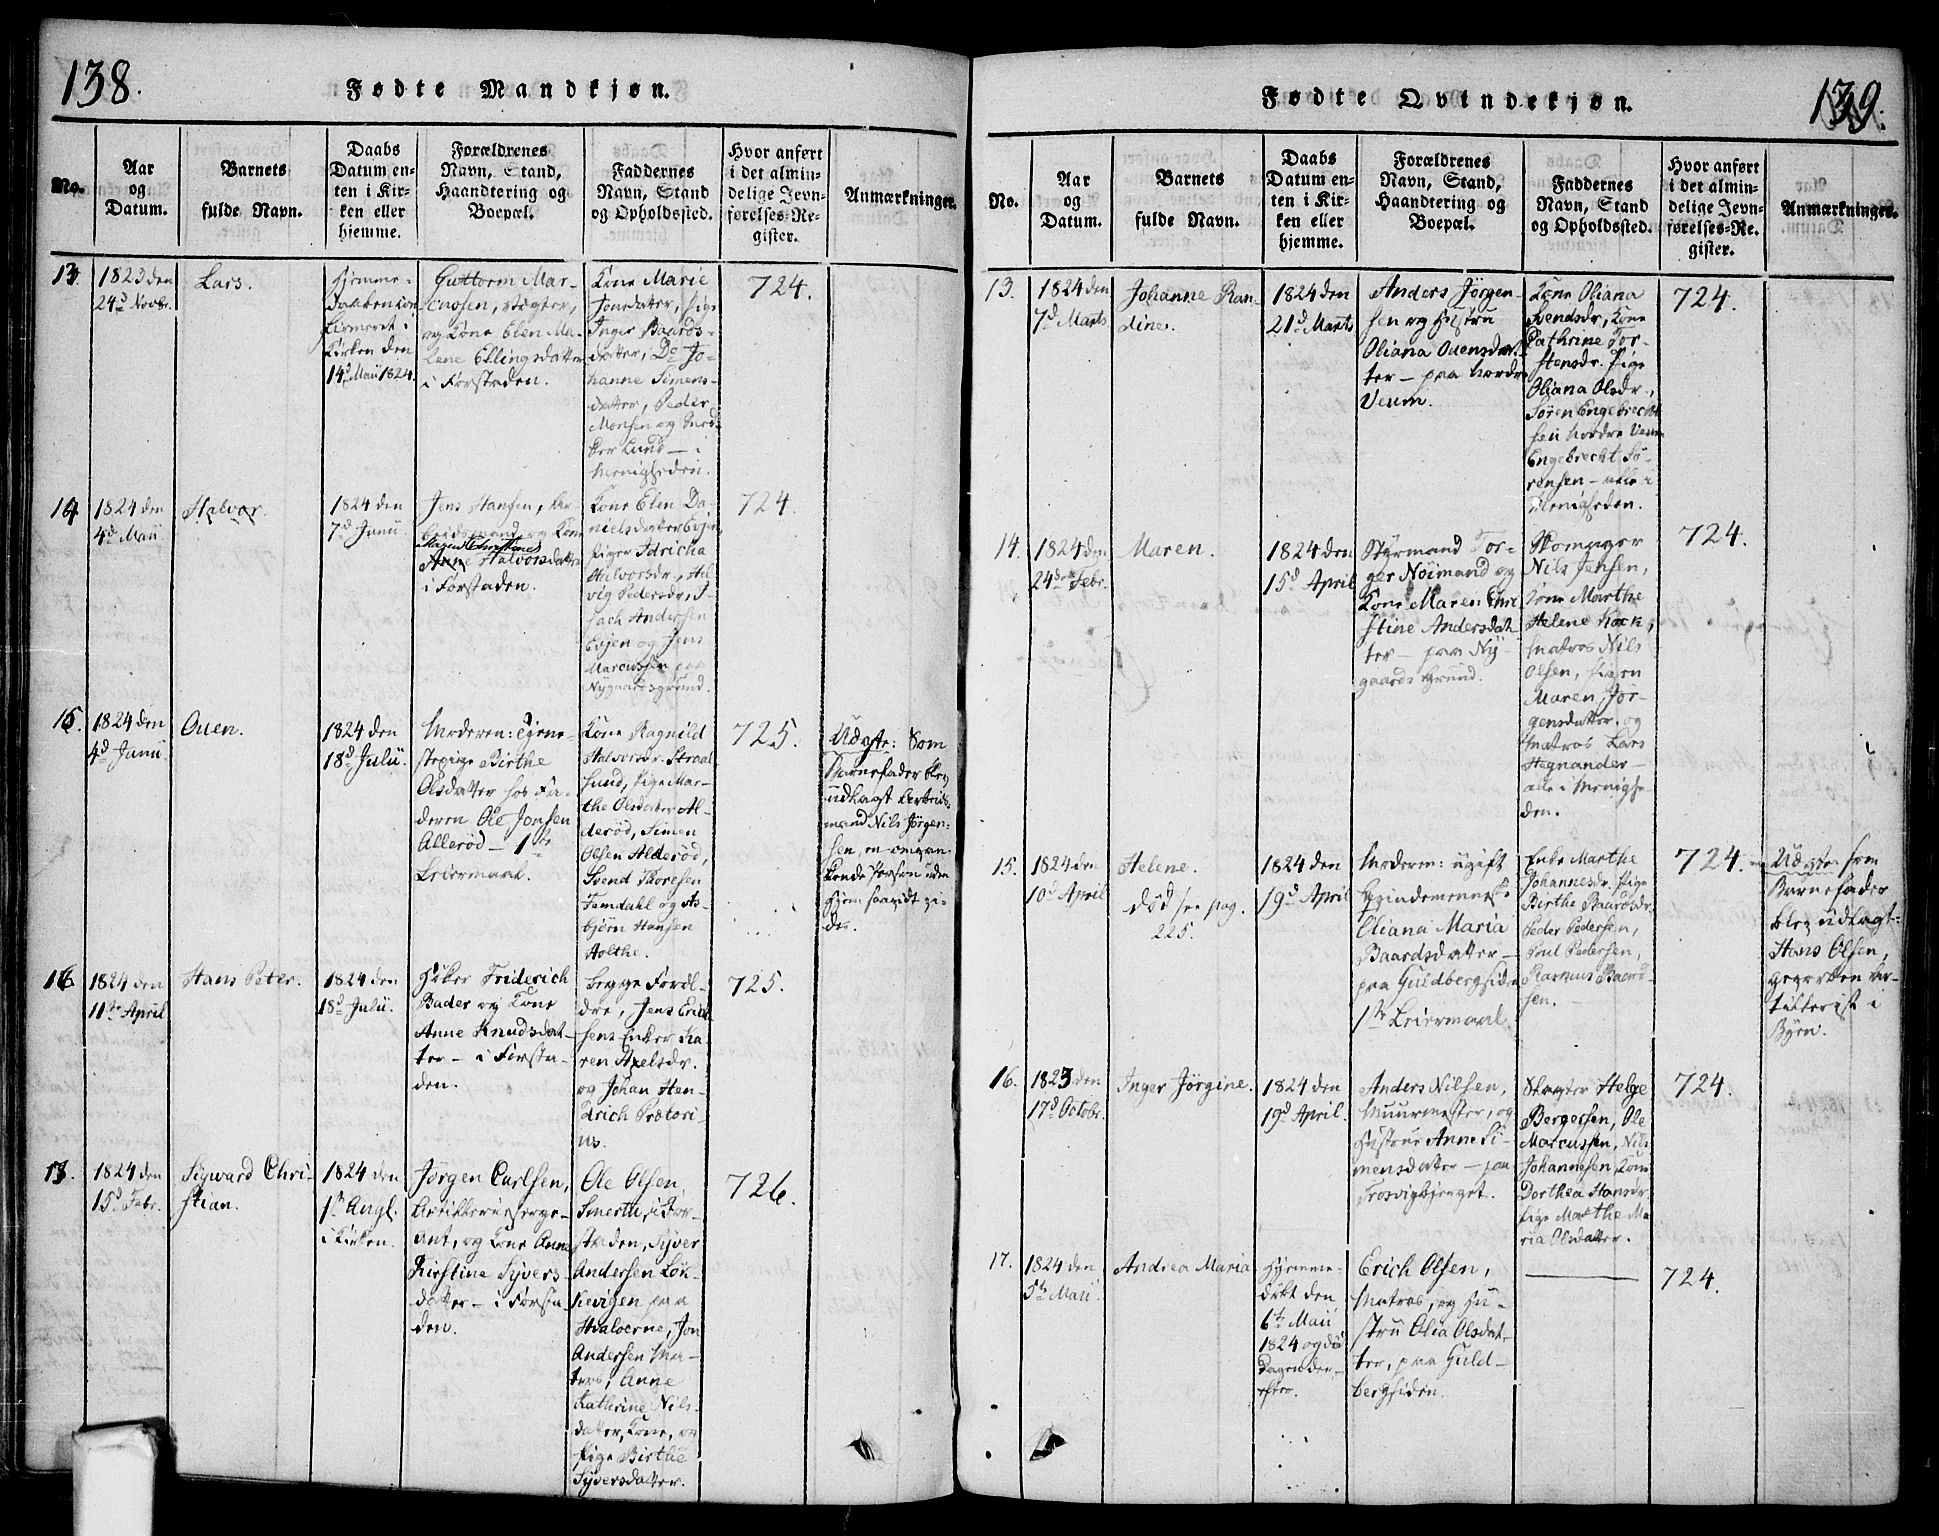 138.
Fødte Mandkjøn.
No.
Aar
og
Datum.
Barnets
fulde Navn.
Daabs
Datum en-
ten i Kir-
ken eller
hjemme.
Forældrenes
Navn, Stand,
Haandtering og
Boepæl.
Faddernes
Navn, Stand
og Opholdssted.
Hvor anført
i det almin-
delige Jevn-
førelses-Re-
gister.
Anmærkninger.
13.
1823 den
24d Novbr.
Lars.
Hjemme-
daabt
i
Kirken den
14d Maii 1824.
Guttorm Mar-
cussen,
og Kone Elen Ma-
lene Ellingsdatter
i Forstaden.
Kone Marie
Jonsdatter, Pige
Inger Baards-
datter, Do Jo-
hanne Simens-
datter, Peder
Monsen og
Lund — i
Menigheden.
724.
14
1824 den
4d Maii
Halvor.
1824 den
7d Junii
Jens Hansen, Ar-
beidsmand og Kone
Maren Christiane
Anne Halvorsdatter
i Forstaden.
Kone Elen Da-
nielsdatter Evjen
Piger Idricha
Halvorsdr., Hel-
vig Pedersdr., I-
sach Andersen
Evjen og Jens
Marcussen paa
Nygaardsgrund.
724.
15.
1824 den
4d Junii
Ouen.
1824 den
18d Julii.
Moderen: Tjene-
stepige Birthe
Olsdatter hos Fa-
deren Ole Jonsen
Allerød — 1ste
Leiermaal.
Kone Ragnild
Halvorsdr. Straal-
sund, Pige Mar-
the Olsdatter Al-
derød, Simen
Olsen Alderød,
Svend Thoresen
Temdahl og As-
bjørn Hansen
Holthe.
725.
Udgte: Som
Barnefader blev
udlagt Arbeids-
mand Nils Jørgen-
sen, en omvan-
kende Person uden
Hjem saavidt vi-
des.
16
1824 den
11te April
Hans Peter.
1824 den
18d Julii.
Høker Friderich
Bader og Kone
Anne Knudsdat-
ter — i Forsta-
den.
Begge Foræl-
dre, Jens Erich-
sens Enke Ka-
ren Axelsdr.
og Johan Hen-
drich Prætori-
us.
725.
13.
1824 den
15d Febr.
Sigward Chri-
stian.
1824 den
1ste Augt.
i Kirken.
Jørgen Carlsen,
Artillerieserge-
ant, og Kone Anne
Kirstine Syvers-
datter — i Forsta-
den.
Ole Olsen
Smerth, i For-
staden, Syver
Andersen Løn-
kevigen paa
Hvaloerne, Jon
Andersen Ma-
tros, Anne
Kathrine Nils-
datter, Kone, og
Pige Birthe
Syversdatter.
726.
139.
Fødte Qvindekjøn.
No.
Aar
og
Datum.
Barnets
fulde Navn.
Daabs
Datum en-
ten i Kir-
ken eller
hjemme.
Forældrenes
Navn, Stand,
Haandtering og
Boepæl.
Faddernes
Navn, Stand
og Opholdssted.
Hvor anført
i det almin-
delige Jevn-
førelses-Re-
gister.
Anmærkninger.
13.
1824 den
7d Marts
Johanne Ran-
dine.
1824 den
21d Marts
Anders Jørgen-
sen og Hustru
Oliana Ouensdat-
ter — paa Nordre
Veum.
Kone Oliana
Svendsdr, Kone
Cathrine Tor-
stensdr. Pige
Oliana Olsdr.,
Søren Engebrecht-
sen Nordre Veum
Engebrecht Sø-
rensen — alle i
Menigheden.
724.
14.
1824 den
24de Febr.
Maren.
1824 den
15d April
Styrmand Tor-
ger Nøimand og
Kone Maren Chri-
stine Andersdat-
ter — paa Ny-
gaards Grund.
Skomager
Nils Jensen,
Kone Marthe
Helene Kock,
Matros Nils
Olsen, Pigen
Maren Jør-
gensdatter. og
Matros Lars
Hegnander —
alle i Menighe-
den.
724.
15.
1824 den
10d April
Helene.
død see pag.
225.
1824 den
19d April
Moderen: ugift
Qvindemenneske
Oliana Maria
Baardsdatter —
paa Guldbergsiden
1ste Leiermaal.
Enke Marthe
Johannesdr. Pige
Birthe Baardsdr.
Peder Pedersen,
Poul Pedersen,
Rasmus Baard-
sen.
724.
Udgte: som
Barnefader
blev udlagt:
Hans Olsen,
Ar-
tillerist i
Byen.
16.
1823 den
17d Octobr.
Inger Jørgine.
1824 den
19d April.
Anders Nilsen,
Muurmester, og
Hustrue Anne Si-
mensdatter — paa
Trosvigbjerget.
Slagter Helge
Bergersen, Ole
Marcussen, Nils
Johannesen, Kone
Dorthea Hansdr
Pige Marthe Ma-
ria Olsdatter.
724.
17.
1824 den
5te Maii.
Andrea Maria
Hjemme-
døbt den
6te Maii
1824 og død
Dagen der-
efter.
Erich Olsen,
Matros, og Hu-
stru Olia Olsdat-
ter, paa Guld-
bergsiden.
724.